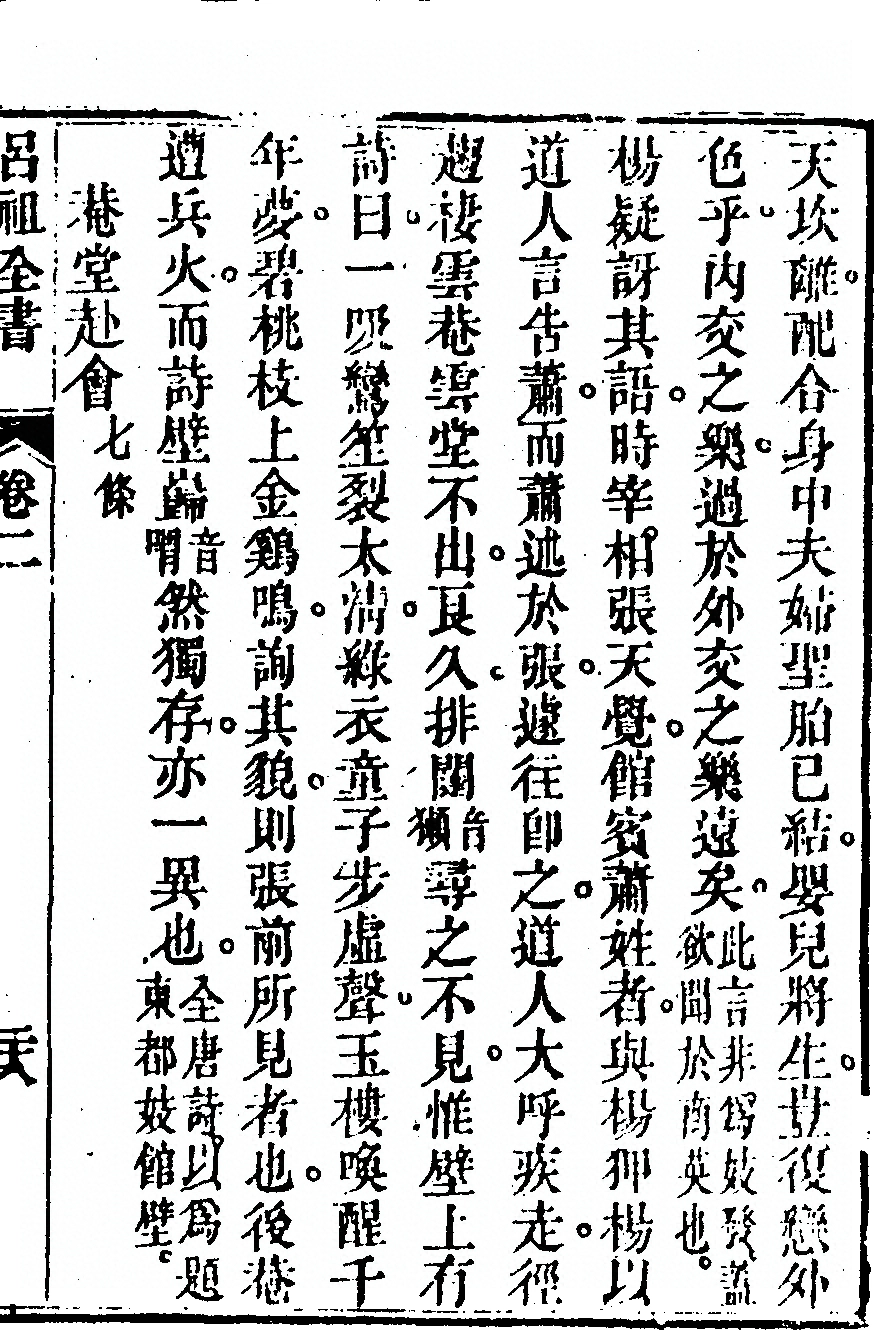 天坎離配合身中夫婦聖胎已結嬰兒將生豈復戀外
色乎內交之樂過於外交之樂遠矣此言非爲妓發蓋欲聞於商英也
楊疑訝其語時宰相張天覺館賓蕭姓者與楊狎楊以
道人言告蕭而蕭述於張張遽往卽之道人大呼疾走徑
趨棲雲菴雲堂不出良久排闥音獺尋之不見惟壁上有
詩曰一吸鸞笙裂太清綠衣童子步虛聲玉樓喚醒千
年夢碧桃枝上金鷄鳴詢其貌則張前所見者也後菴
遭兵火而詩壁巋音喟然獨存亦一異也全唐詩以爲題東都妓館壁
菴堂赴會七條
呂祖全書 卷二 二六